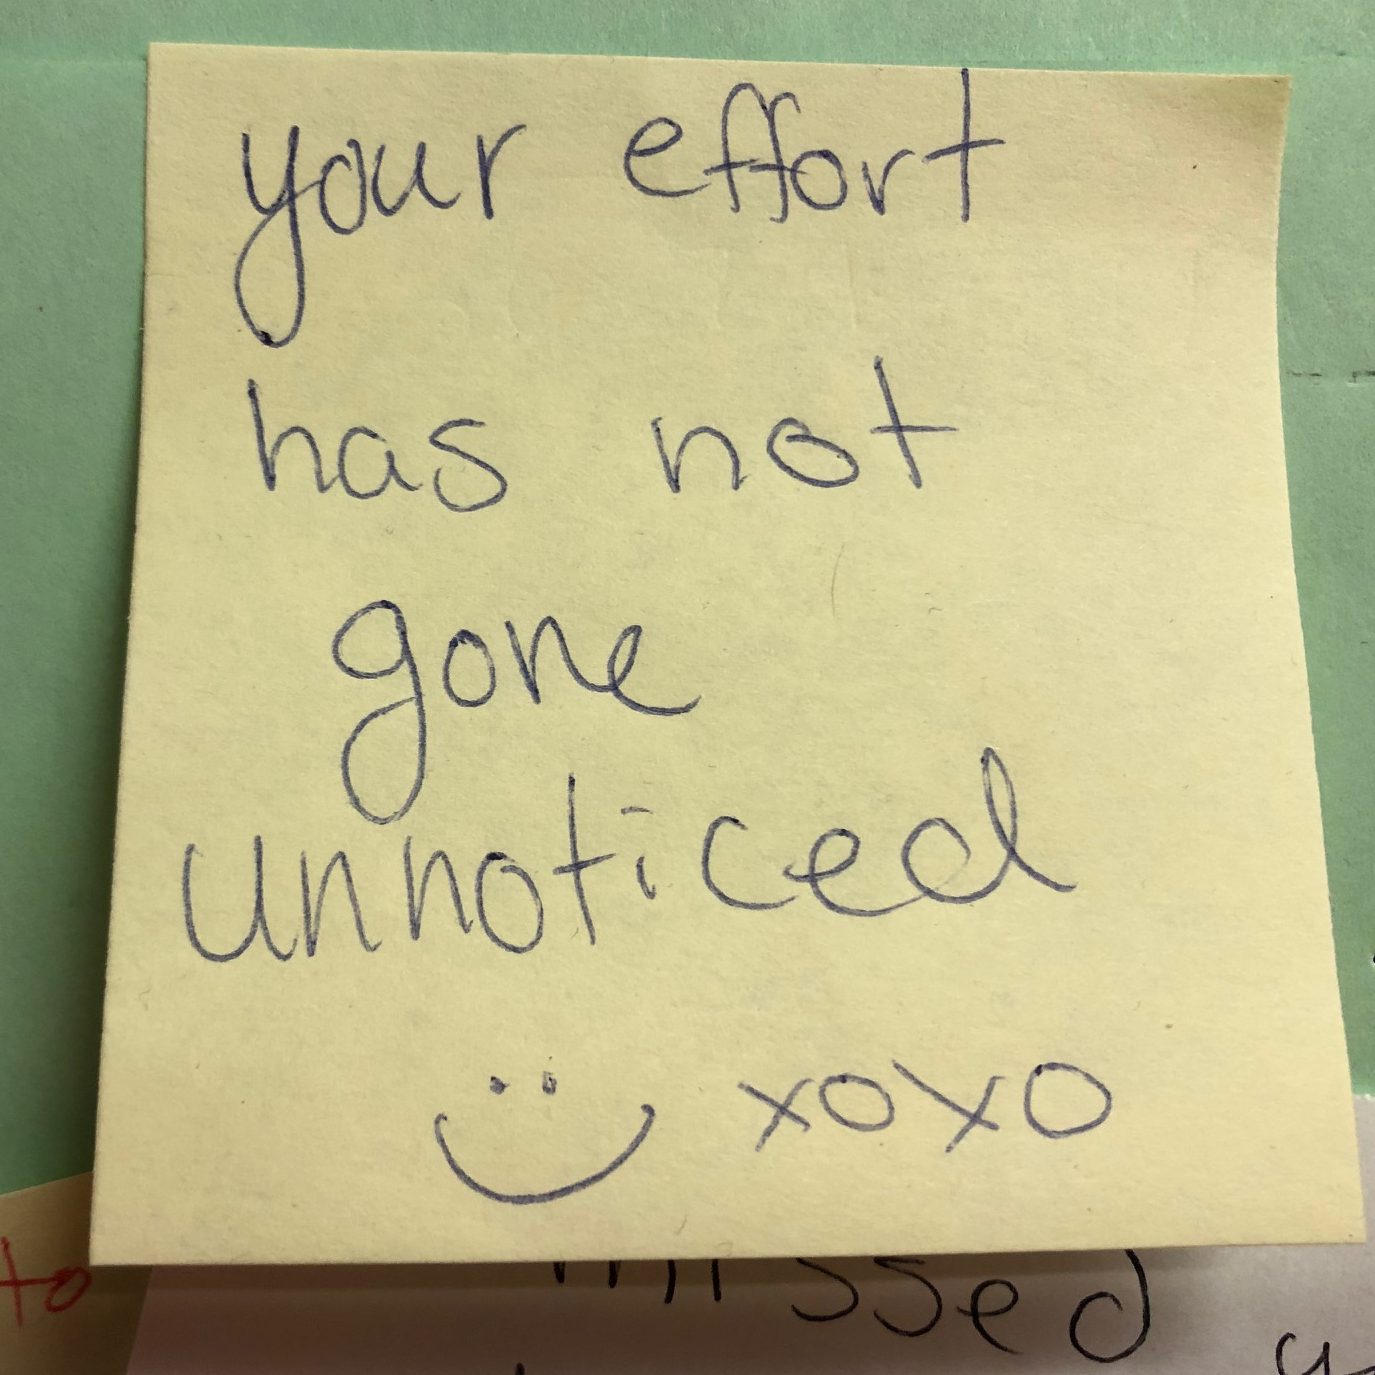 your effort
has not
gone
unnoticed
xoxo
to
missed